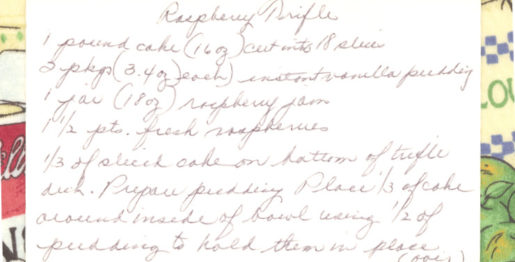 Raspberry Trifle
1 pound cake (16 oz) cut into 18 slices
2 pkgs (3.4 oz each) instant vanilla pudding
1 jar (18 oz) raspberry jam
1 1/2 pts. fresh raspberries
1/3 of sliced cake on bottom of trifle
dish. Prepare pudding Place 1/3 of cake
around inside of bowl using 1/2 of
pudding to hold them in place
(over)